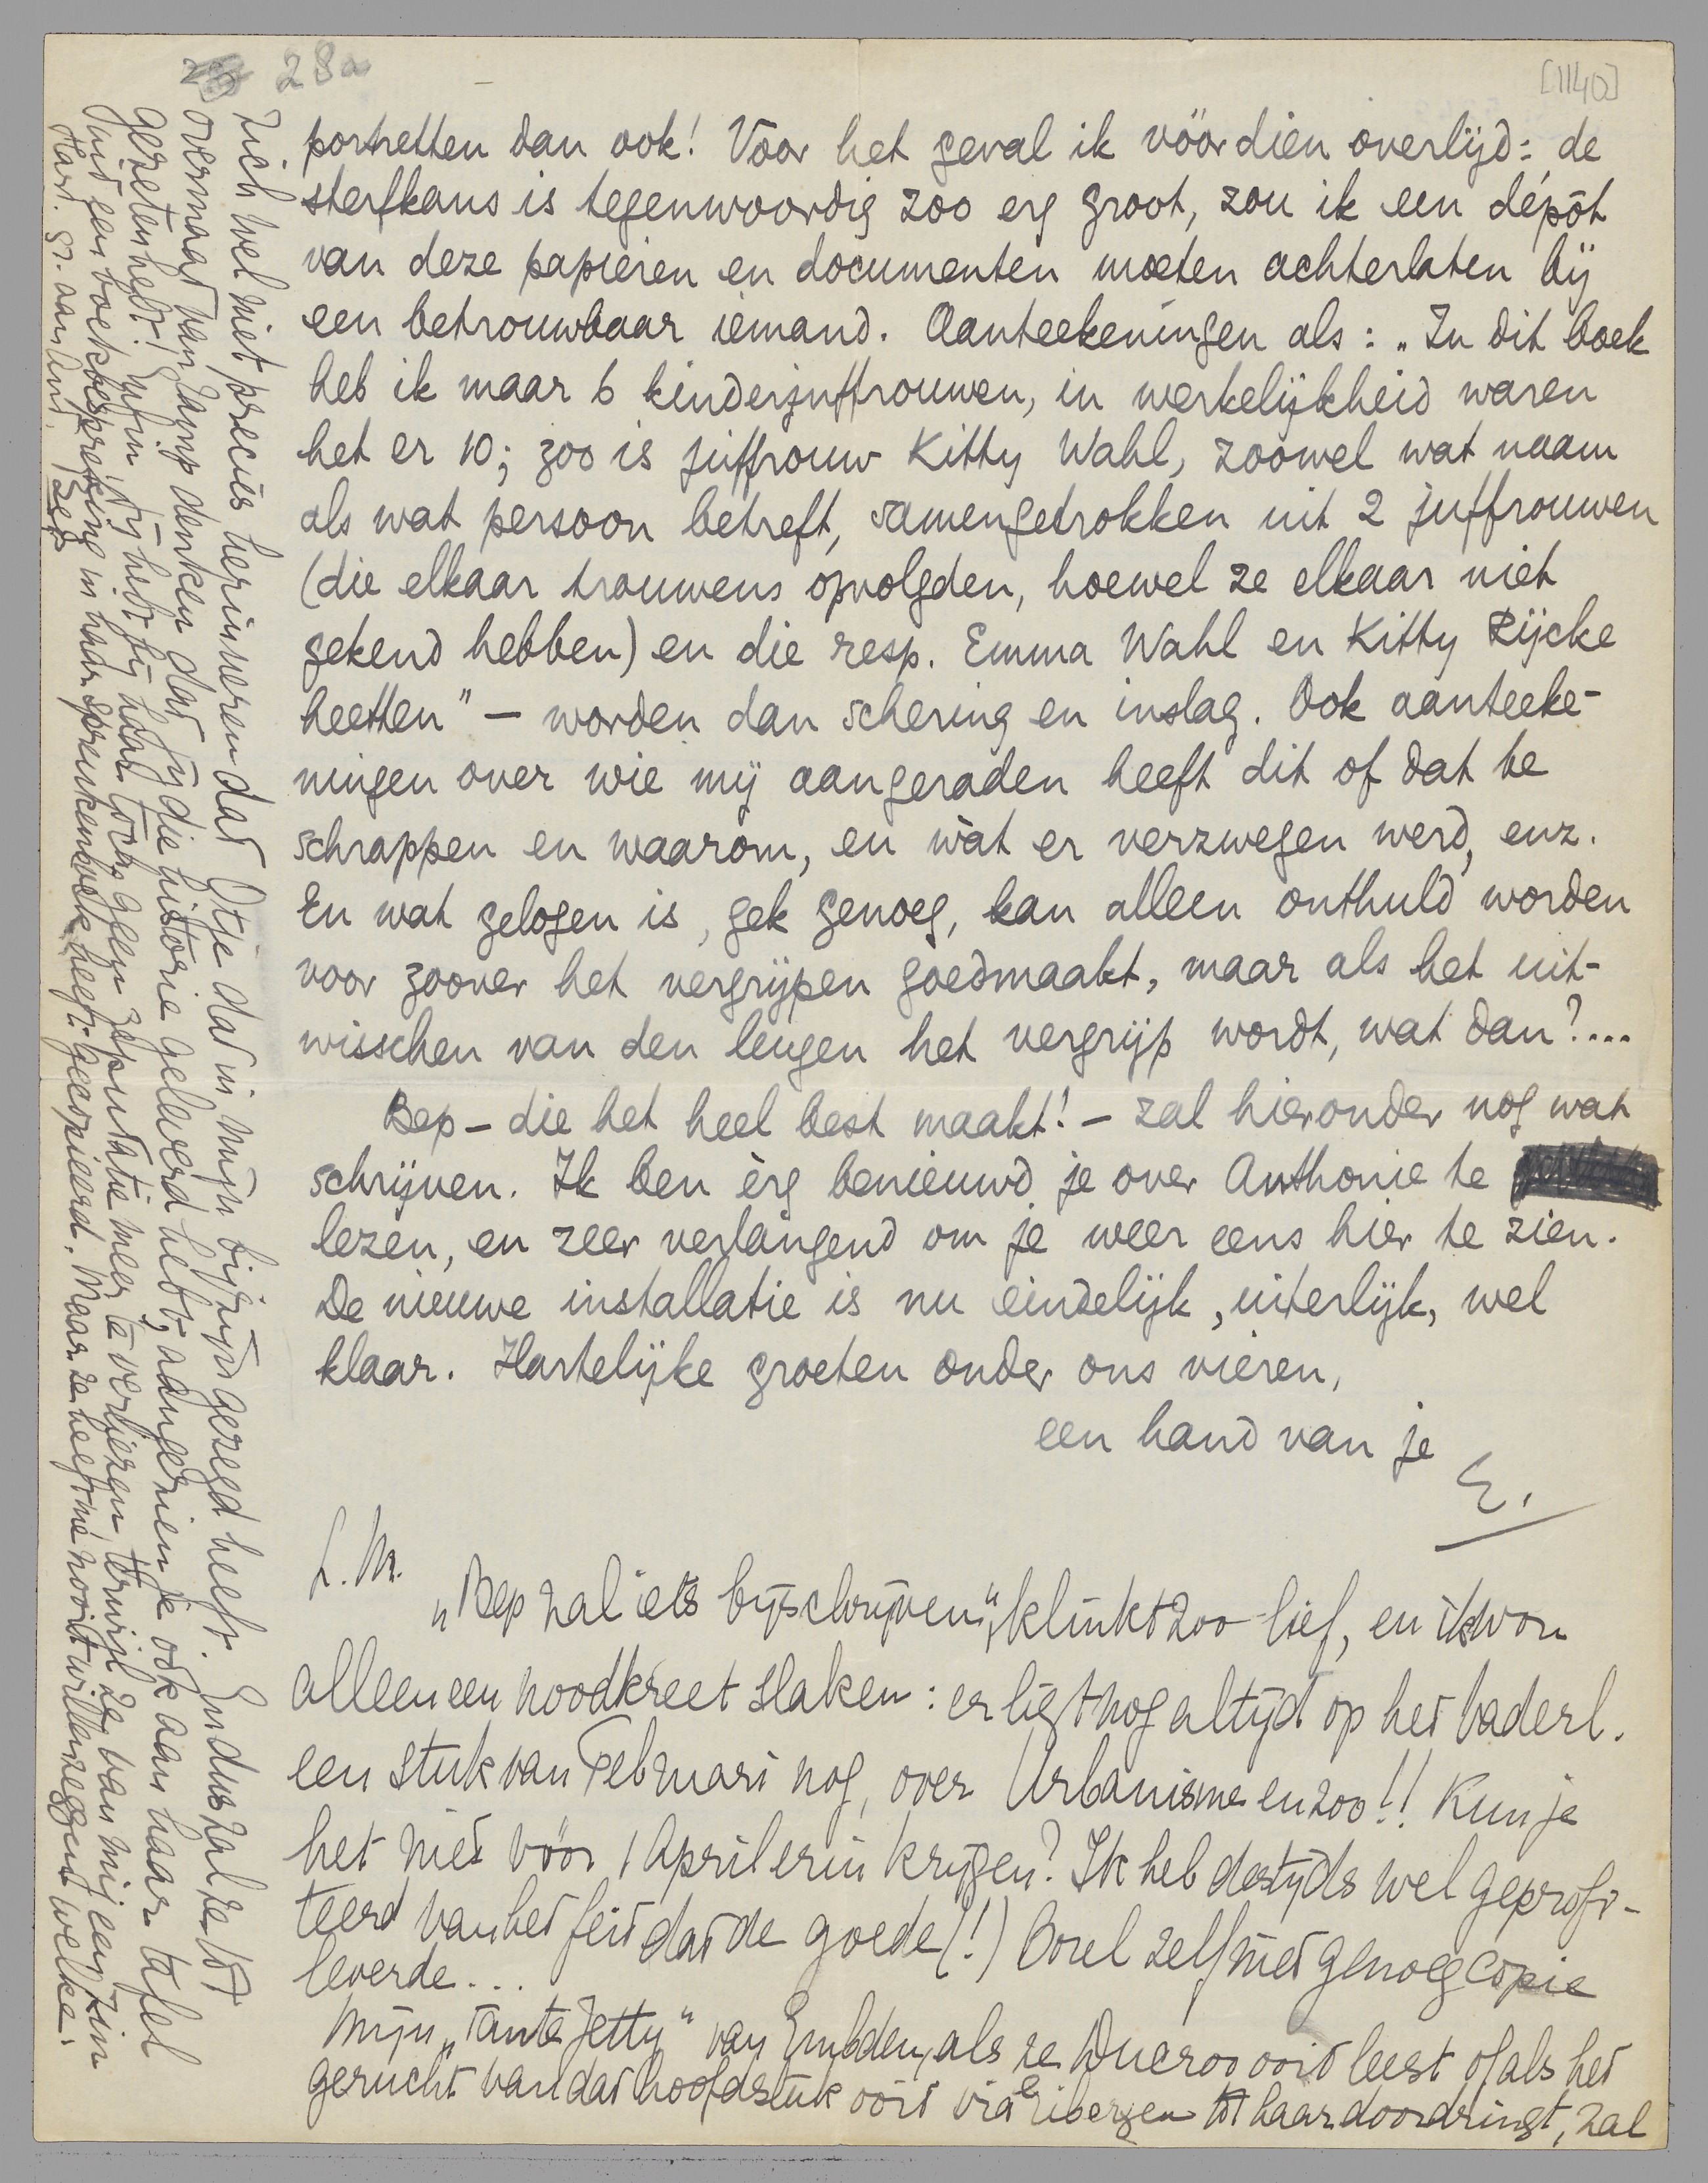 28a
[1140]
portretten dan ook! Voor het geval ik vóór dien overlijd: de
sterfkans is tegenwoordig zoo erg groot, zou ik een dépôt
van deze papieren en documenten moeten achterlaten bij
een betrouwbaar iemand. Aanteekeningen als: „In dit boek
heb ik maar 6 kinderjuffrouwen, in werkelijkheid waren
het er 10; zoo is juffrouw Kitty Wahl, zoowel wat naam
als wat persoon betreft, samengetrokken uit 2 juffrouwen
(die elkaar trouwens opvolgden, hoewel ze elkaar niet
gekend hebben) en die resp. Emma Wahl en Kitty Rijcke
heetten" — worden dan schering en inslag. Ook aanteeke-
ningen over wie mij aangeraden heeft dit of dat te
schrappen en waaròm, en wàt er verzwegen werd, enz.
En wat gelogen is, gek genoeg, kan alleen onthuld worden
voor zoover het vergrijpen goedmaakt, maar als het uit-
wisschen van den leugen het vergrijp wordt, wat dan?....
Bep – die het heel best maakt! – zal hieronder nog wat
schrijven. Ik ben èrg benieuwd je over Anthonie te
lezen, en zeer verlangend om je weer eens hier te zien.
De nieuwe installatie is nu eindelijk, uiterlijk, wel
klaar. Hartelijke groeten onder ons vieren,
een hand van je
E.
L. M.
„Bep zal iets bijschrijven", klinkt zoo lief, en ik wou
alleen een noodkreet slaken: er ligt nog altijd op het vaderl.
een stuk van Februari nog, over Urbanisme en zoo!! Kun je
het niet vóór 1 April erin krijgen? Ik heb destijds wel geprofi-
teerd van het feit dat de goede (!) Borel zelf niet genoeg copie
leverde...
Mijn „Tante Jetty" van Embden, als ze Ducroo ooit leest of als het
gerucht van dat hoofdstuk ooit via Greshoff tot haar doordringt, zal
zich wel niet precies herinneren dat Otje dat in mijn bijzijn gezegd heeft. En dus zal ze tot
overmaat van ramp denken dat jij die historie geleverd hebt, aangezien je ook aan haar tafel
gezeten hebt! Enfin, jij hebt bij haar toch geen reputatie meer te verliezen, terwijl ze van mij een zin
uit een boekbespreking in haar spreukenboek heeft gecopieerd. Maar ze heeft me nooit willen zeggen welke.
Hart. gr. aan Ant,
Bep